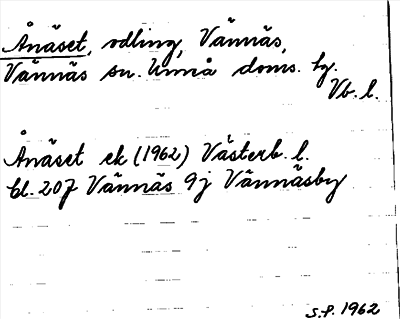 Ånäset, odling, Vännäs,
Vännäs sn. Umeå doms. hg.
Vb. l.
Ånäset ek (1962) Västerb. l.
bl. 207 Vännäs 9j Vännäsby
S.P. 1962